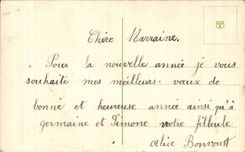 Chère Marraine.
Pour la nouvelle année je vous
souhaite mes meilleurs vœux de
bonne et heureuse année ainsi qu'à
Germaine et Simone votre filleule
Alice Bonvoust